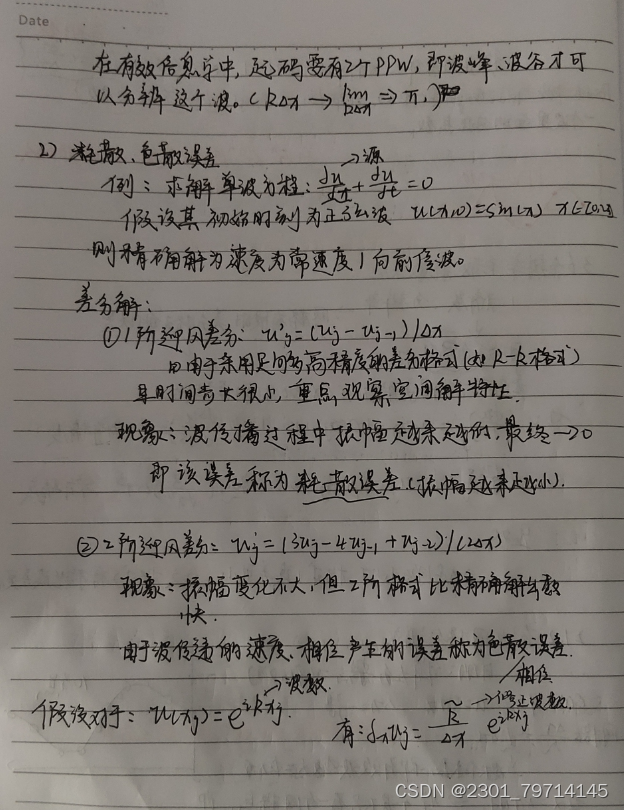 Date
在有效信息字中,起码要有2个PPW,即波峰、波谷才可
以分辨这个波。(kΔx → lim kΔx ⇒ π,)
2) 耗散、色散误差
→源
例:求解单波方程:du/dx + du/dt = 0
假设其初始时刻为正弦波 u(x,0)=sin(x) x∈[0,2π]
则精确解为速度为常速度1向前传波。
差分解:
①1阶迎风差分: u'j=(uj-uj-1)/Δx
由于采用足够高精度的差分格式(如R-K格式)
且时间步长很小,重点观察空间解特性.
现象:波传播过程中振幅越来越低,最终→0
即该误差称为耗散误差(振幅越来越小).
②2阶迎风差分: u'j=(3uj-4uj-1+uj-2)/(2Δx)
现象:振幅变化不大,但2阶格式比精确解
快.
由于波传播的速度、相位产生的误差称为色散误差.
→波数. 相位
假设对于: u(xj)=e^{ikxj}. 有:δxuj= k̃/Δx e^{ikxj} →修正波数.
CSDN @2301_79714145